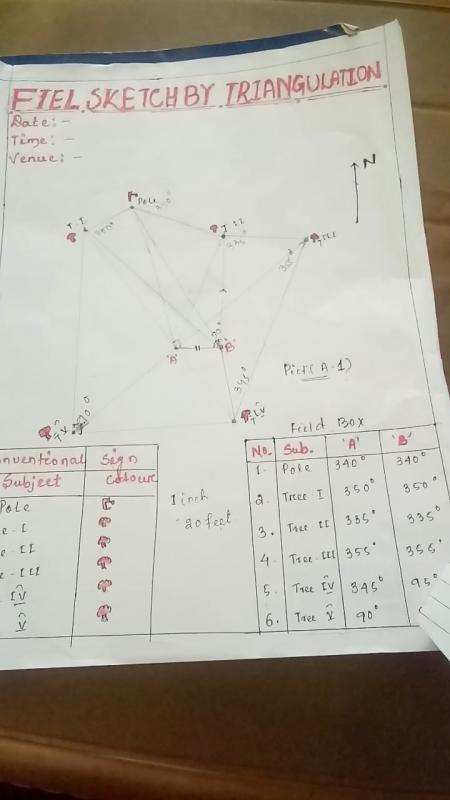 FIEL SKETCH BY TRIANGULATION
Date:-
Time:-
Venue:-
N
Pole
340°
T-I
350°
T II
335°
T III
355°
'A'
'B'
90°
345°
T IV
T V
Pict (A-1)
Field Box
onventional Sign
Subject Colour
Pole
e-I
e-II
e-III
IV
V
1 inch
20 feet
No. Sub. 'A' 'B'
1. Pole 340° 340°
2. Tree-I 350° 350°
3. Tree II 335° 335°
4. Tree-III 355° 355°
5. Tree IV 345° 95°
6. Tree V 90°